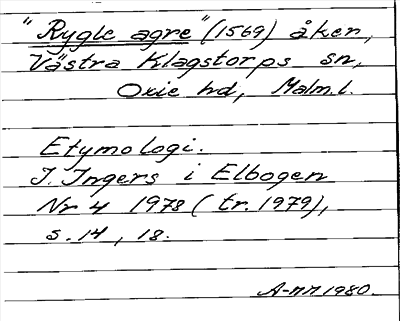 "Rygle agre" (1569) åker,
Västra Klagstorps sn,
Oxie hd, Malm.l.
Etymologi.
I. Ingers i Elbogen
Nr 4 1978 (tr. 1979),
s. 14, 18.
A-nn 1980.